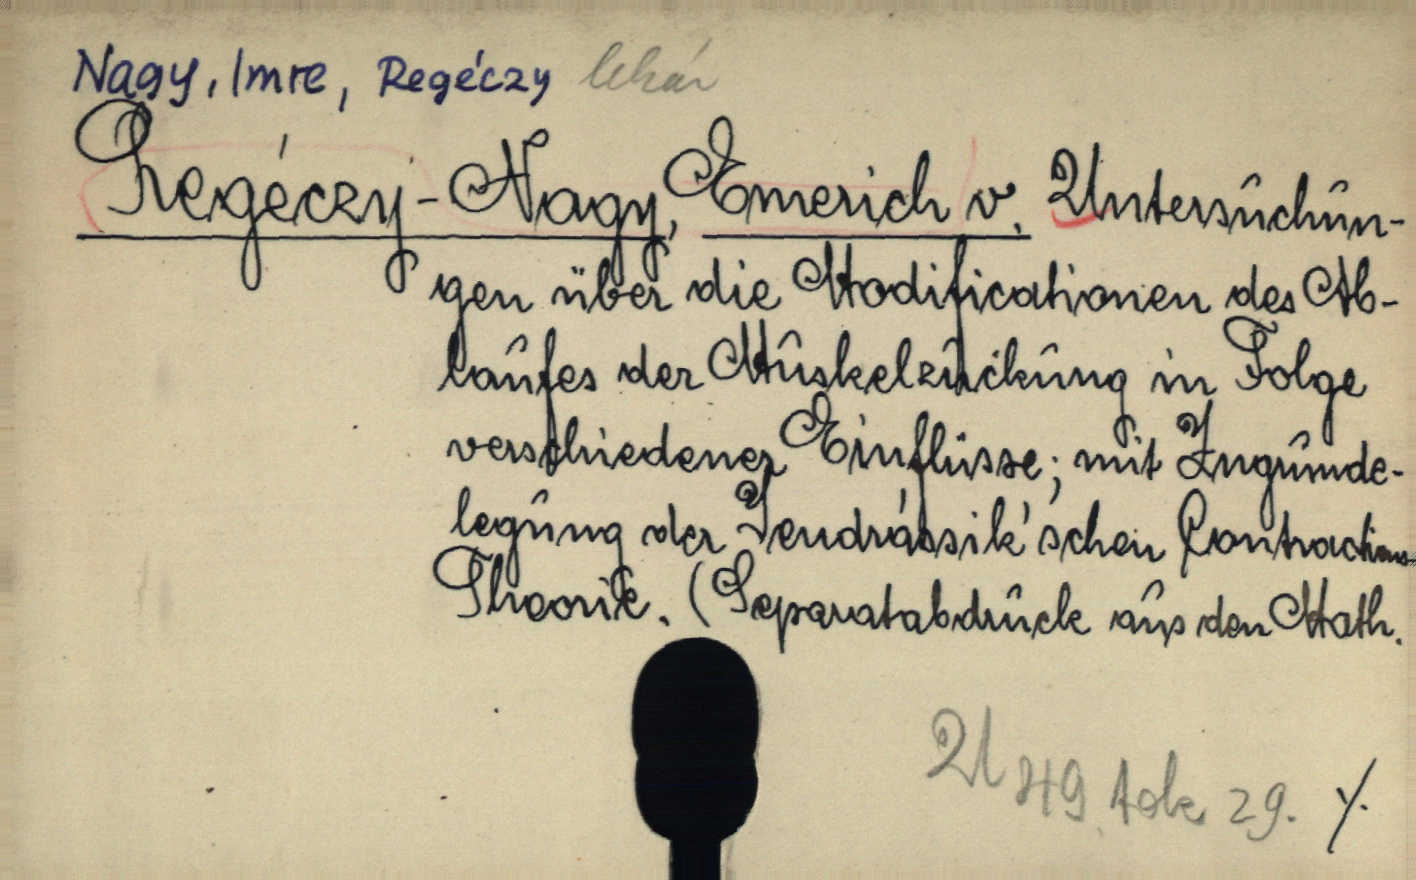 Nagy, Imre, Regéczy lekár
Regéczy-Nagy, Emerich v. Untersuchun-
gen über die Modificationen des Ab-
laufes der Muskelzuckung in Folge
verschiedener Einflüsse; mit Zugrunde-
legung der Jendrássik'schen Contractions-
Theorie. (Separatabdruck aus den Math.
29. y.